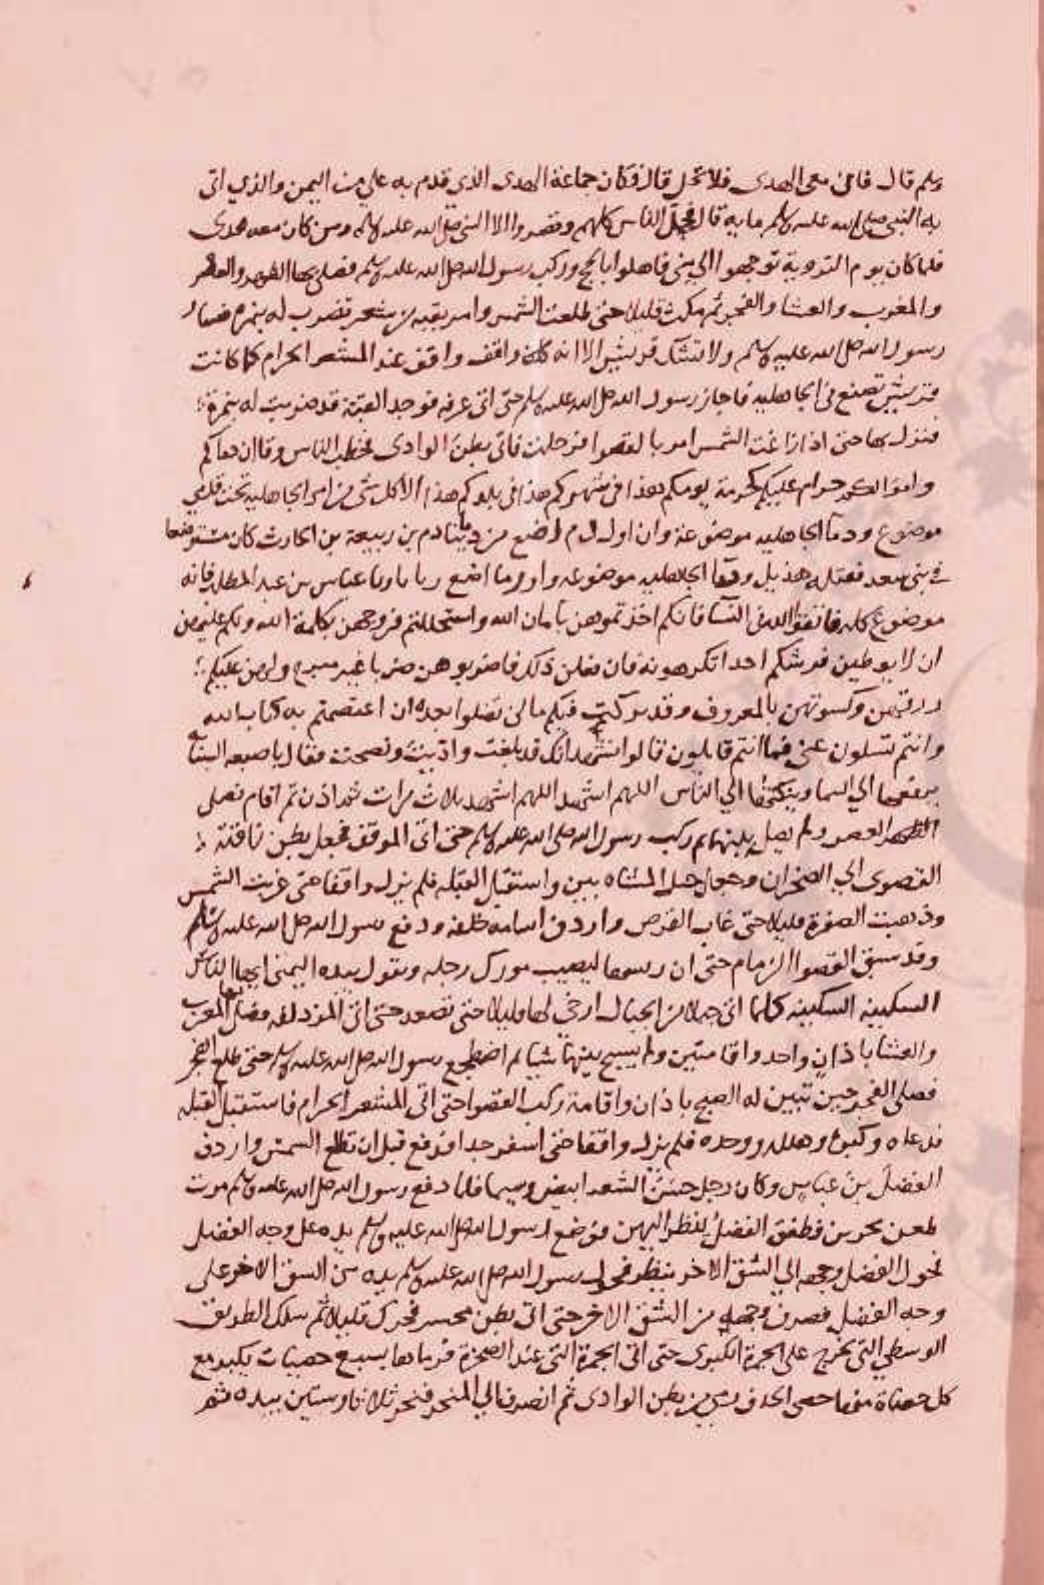 وسلم قال فان معي الهدى فلا تحل قال فكان جماعة الهدى الذي قدم به علي من اليمن والذي اتى
به النبي صلى الله عليه وسلم ماية قال فحل الناس كلهم وقصروا الا النبي صلى الله عليه وسلم ومن كان معه هدى
فلما كان يوم التروية توجهوا الي منى فاهلوا بالحج وركب رسول الله صلى الله عليه وسلم فصلى بها الظهر والعصر
والمغرب والعشا والفجر ثم مكث قليلا حتى طلعت الشمس وامر بقبه من شعر تضرب له بنمره فسار
رسول الله صلى الله عليه وسلم ولا تشك قريش الا انه كان واقف واقف عند المشعر الحرام كما كانت
قريش تصنع في الجاهليه فاجاز رسول الله صلى الله عليه وسلم حتى اتى عرفه فوجد القبة قد ضربت له بنمرة
فنزل بها حتى اذا زاغت الشمس امر بالقصوا فرحلت فاتى بطن الوادى فخطب الناس وقال ان دماكم
واموالكم حرام عليكم كحرمة يومكم هذا في شهركم هذا في بلدكم هذا الا كل شى من امر الجاهليه تحت قدمي
موضوع ودما الجاهليه موضوعة وان اول دم اضع من دمانا دم بن ربيعة بن الحارث كان مسترضعا
في بني سعد فقتله هذيل وربا الجاهليه موضوعه واول ربا اضع ربانا ربا عباس بن عبد المطلب فانه
موضوع كله فاتقوا الله في النسا فانكم اخذتموهن بامان الله واستحللتم فروجهن بكلمة الله ولكم عليهن
ان لا يوطين فرشكم احدا تكرهونه فان فعلن ذلك فاضربوهن ضربا غير مبرح ولهن عليكم
رزقهن وكسوتهن بالمعروف وقد تركت فيكم ما لن تضلوا بعده ان اعتصمتم به كتاب الله
وانتم تسلون عني فما انتم قايلون قالوا نشهد انك قد بلغت واديت ونصحت فقال باصبعه السبابة
يرفعها الي السما وينكتها الي الناس اللهم اشهد اللهم اشهد ثلاث مرات ثم اذن ثم اقام فصلى
الظهر العصر ولم يصل بينهما ثم ركب رسول الله صلى الله عليه وسلم حتى اتى الموقف فجعل بطن ناقته
القصوى الي الصخران وجعل حبل المشاه بين واستقبل القبله فلم يزل واقفا حتى غربت الشمس
وذهبت الصفرة قليلا حتى غاب القرص واردف اسامه خلفه ودفع رسول الله صلى الله عليه وسلم
وقد شنق القصوا الزمام حتى ان رسها ليصيب مورك رجله ويقول بيده اليمنى ايها الناس
السكينه السكينه كلما اتى حبلا من الحبال ارخى لها قليلا حتى تصعد حتى اتى المزدلفه فصلى بها المغرب
والعشا باذان واحد واقامتين ولم يسبح بينهما شيا ثم اضطجع رسول الله صلى الله عليه وسلم حتى طلع الفجر
فصلى الفجر حين تبين له الصبح باذان واقامة ركب القصوا حتى اتى المشعر الحرام فاستقبل القبله
فدعاه وكبره وهلله ووحده فلم يزل واقفا حتى اسفر جدا فدفع قبل ان تطلع الشمس واردف
الفضل بن عباس وكان رجل حسن الشعر ابيض وسيما فلما دفع رسول الله صلى الله عليه وسلم مرت
ظعن يجرين فطفق الفضل ينظر اليهن فوضع رسول الله صلى الله عليه وسلم يده على وجه الفضل
فحول الفضل وجهه الي الشق الاخر ينظر فحول رسول الله صلى الله عليه وسلم يده من الشق الاخر على
وجه الفضل فصرف وجهه من الشق الاخر حتى اتى بطن محسر فحرك قليلا ثم سلك الطريق
الوسطي التي تخرج على الجمرة الكبرى حتى اتى الجمرة التي عند الشجرة فرماها بسبع حصيات يكبر مع
كل حصاة منها حصى الحذف رمى من بطن الوادى ثم انصرف الي المنحر فنحر ثلاثا وستين بيده ثم